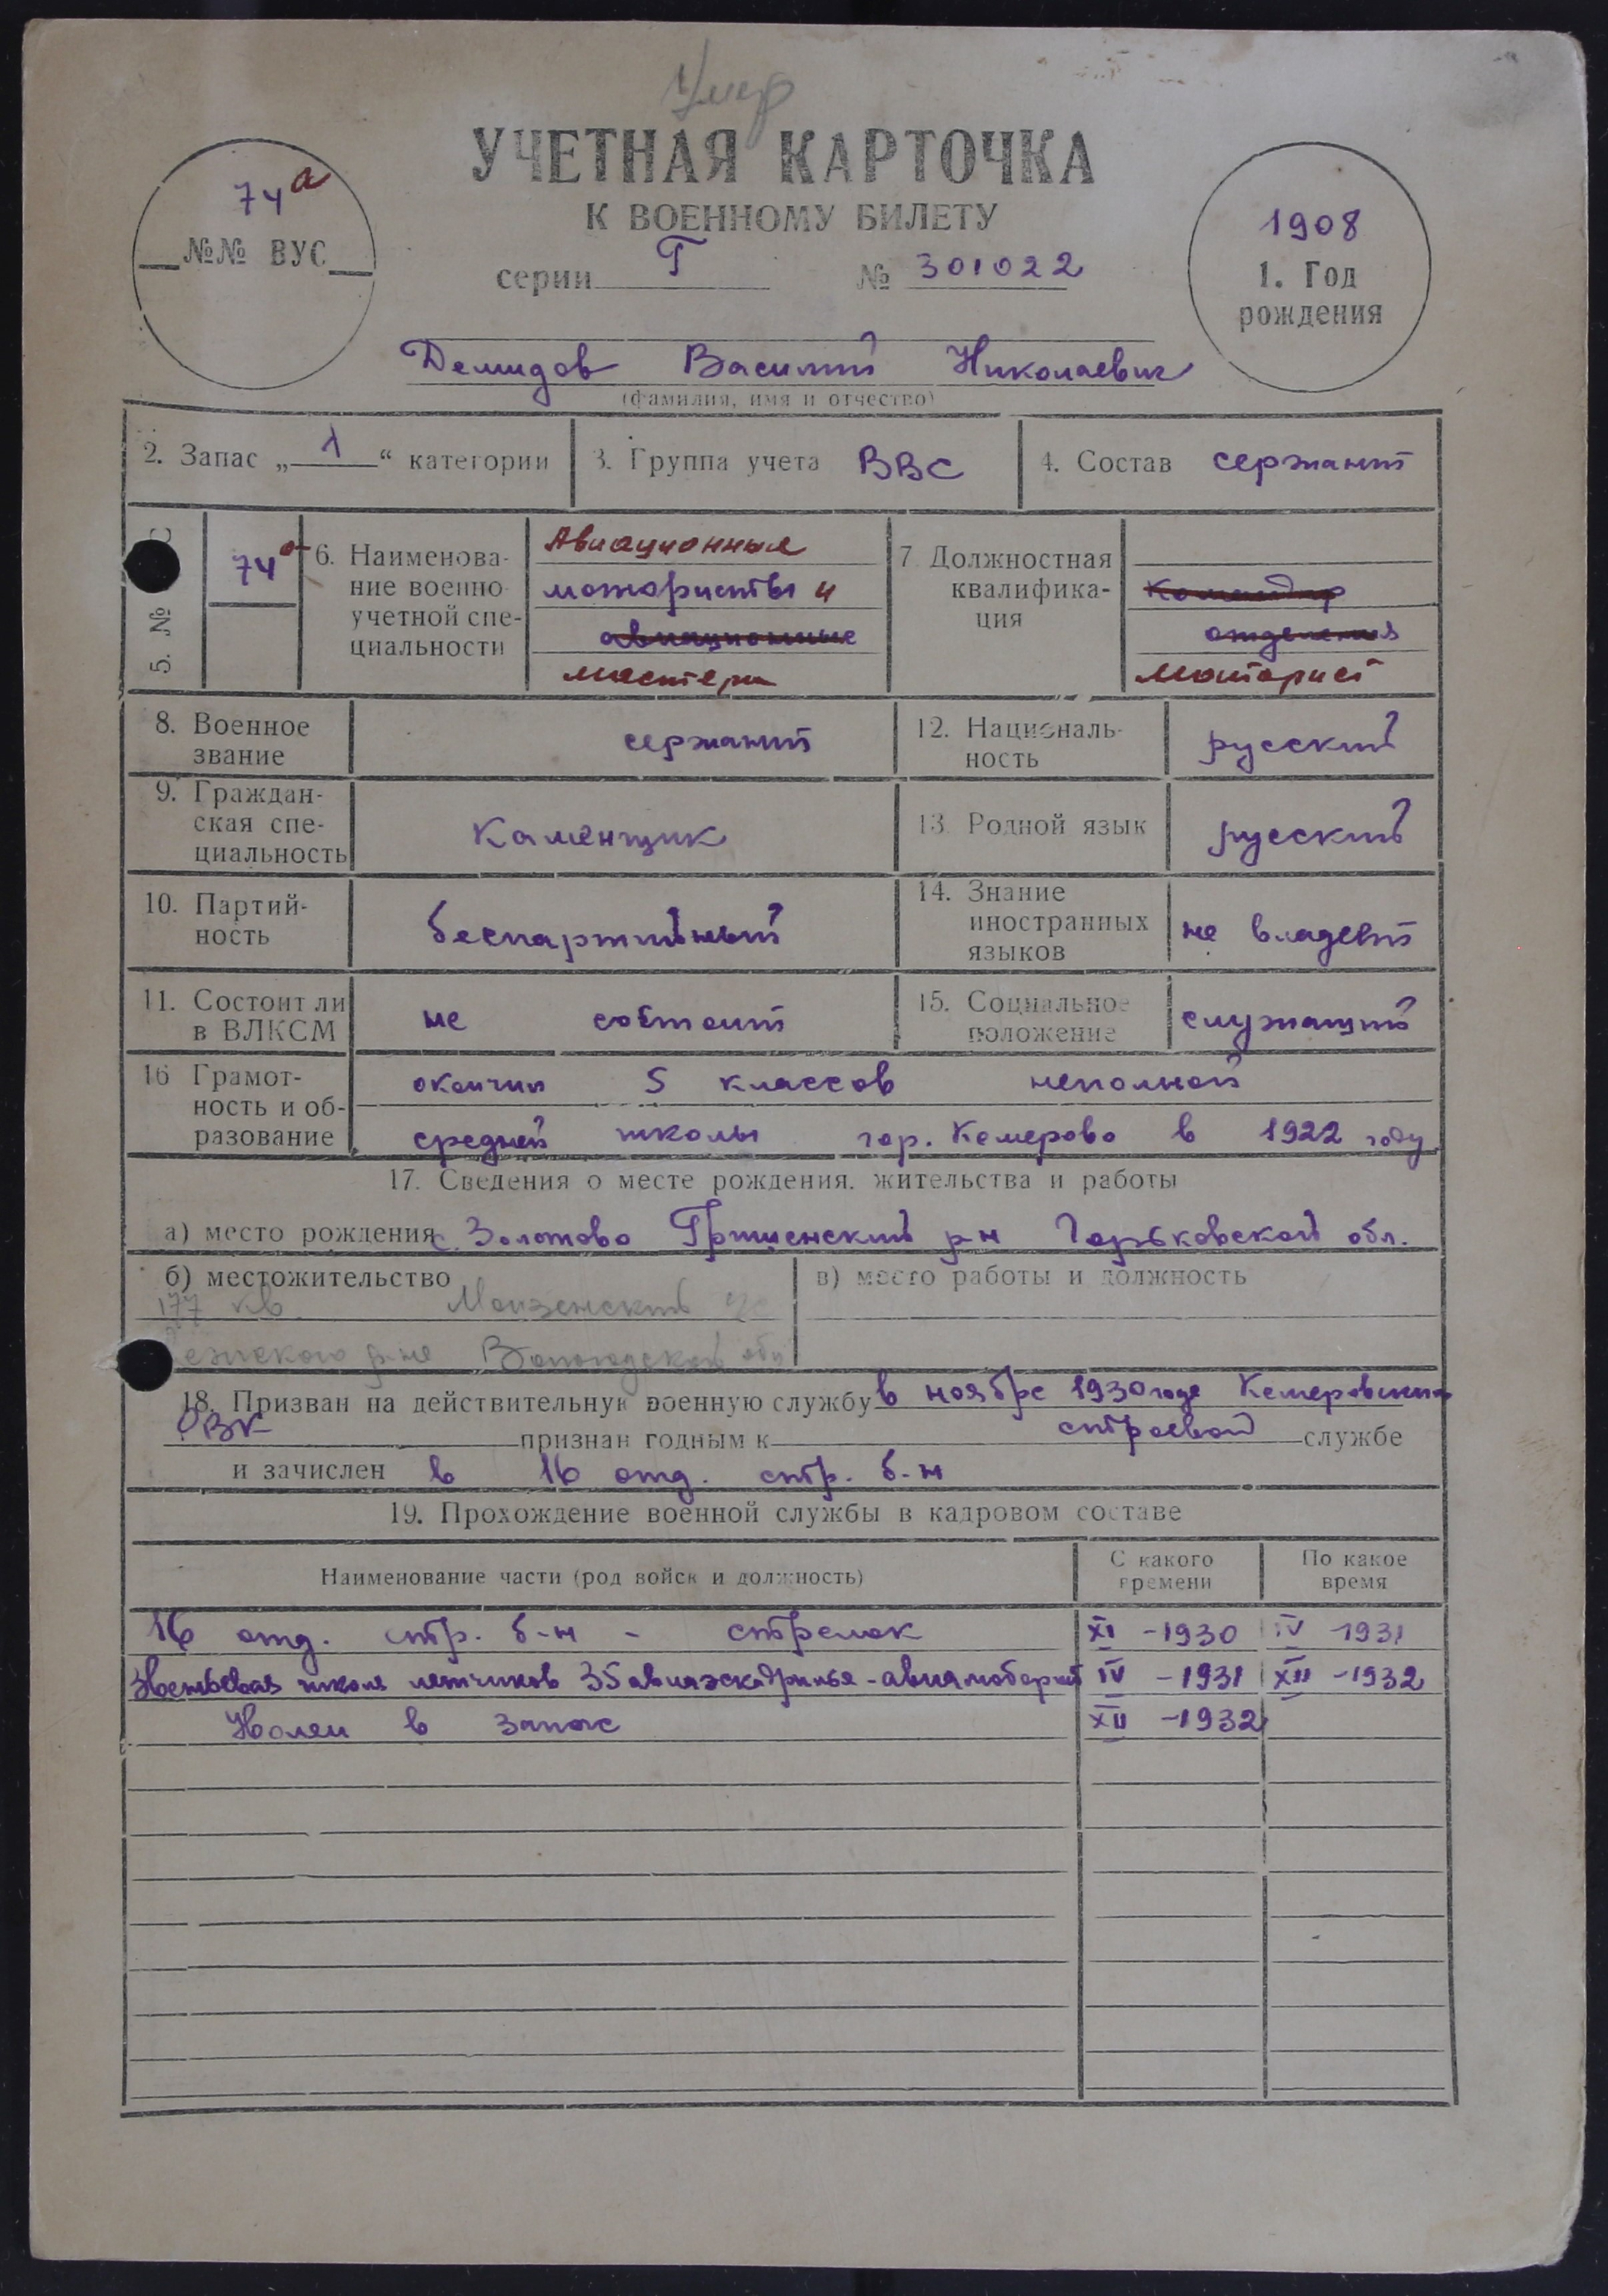 Умер
УЧЕТНАЯ КАРТОЧКА
К ВОЕННОМУ БИЛЕТУ
серии Т № 301022
74а
№№ ВУС
1908
1. Год
рождения
Демидов Василий Николаевич
(фамилия, имя и отчество)
2. Запас „1“ категории
3. Группа учета ВВС
4. Состав сержант
5. № С
74а
6. Наименова-
ние военно
учетной спе-
циальности
Авиационные
мотористы и
авиационные
мастера
7 Должностная
квалифика-
ция
Командир
отделения
Моторист
8. Военное
звание
сержант
12. Националь-
ность
русский
9. Граждан-
ская спе-
циальность
Каменщик
13. Родной язык
русский
10. Партий-
ность
беспартийный
14. Знание
иностранных
языков
не владеет
11. Состоит ли
в ВЛКСМ
не состоит
15. Социальное
положение
служащий
16 Грамот-
ность и об-
разование
окончил 5 классов неполной
средней школы гор. Кемерово в 1922 году
17. Сведения о месте рождения, жительства и работы
а) место рождения с. Золотово Горьковской обл.
б) местожительство
177 кв
р-не Вологодской обл
в) место работы и должность
18. Призван на действительную военную службу в ноябре 1930 года Кемеровским
РВК признан годным к строевой службе
и зачислен в 16 отд. стр. б-н
19. Прохождение военной службы в кадровом составе
Наименование части (род войск и должность)
С какого
времени
По какое
время
16 отд. стр. б-н - стрелок XI -1930 IV 1931
школа летчиков 35 авиаэскадрилья - авиамоторист IV -1931 XII -1932
Уволен в запас XII -1932